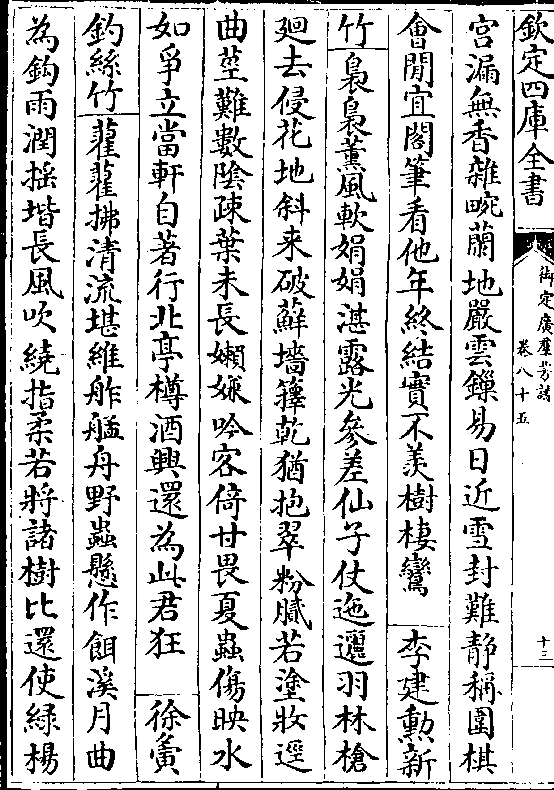 欽定四庫全書
御定廣羣芳譜
卷八十五
十三
宫漏無香雜畹蘭地嚴雲鏁易日近雪封難静稱圍棋
會閒宜閣筆看他年終結實不羡樹棲鸞 李建勲新
竹 裊裊薰風軟娟娟湛露光參差仙子仗迤邐羽林槍
迴去侵花地斜来破蘚墻籜乾猶抱翠粉膩若塗妝逕
曲莖難數陰疎葉未長嬾嫌吟客倚甘畏夏蟲傷映水
如爭立當軒自著行北亭樽酒興還為此君狂 徐夤
釣絲竹 蘿蘿拂清流堪維舴艋舟野蟲懸作餌溪月曲
為鈎雨潤揺堦長風吹繞指柔若將諸樹比還使緑楊